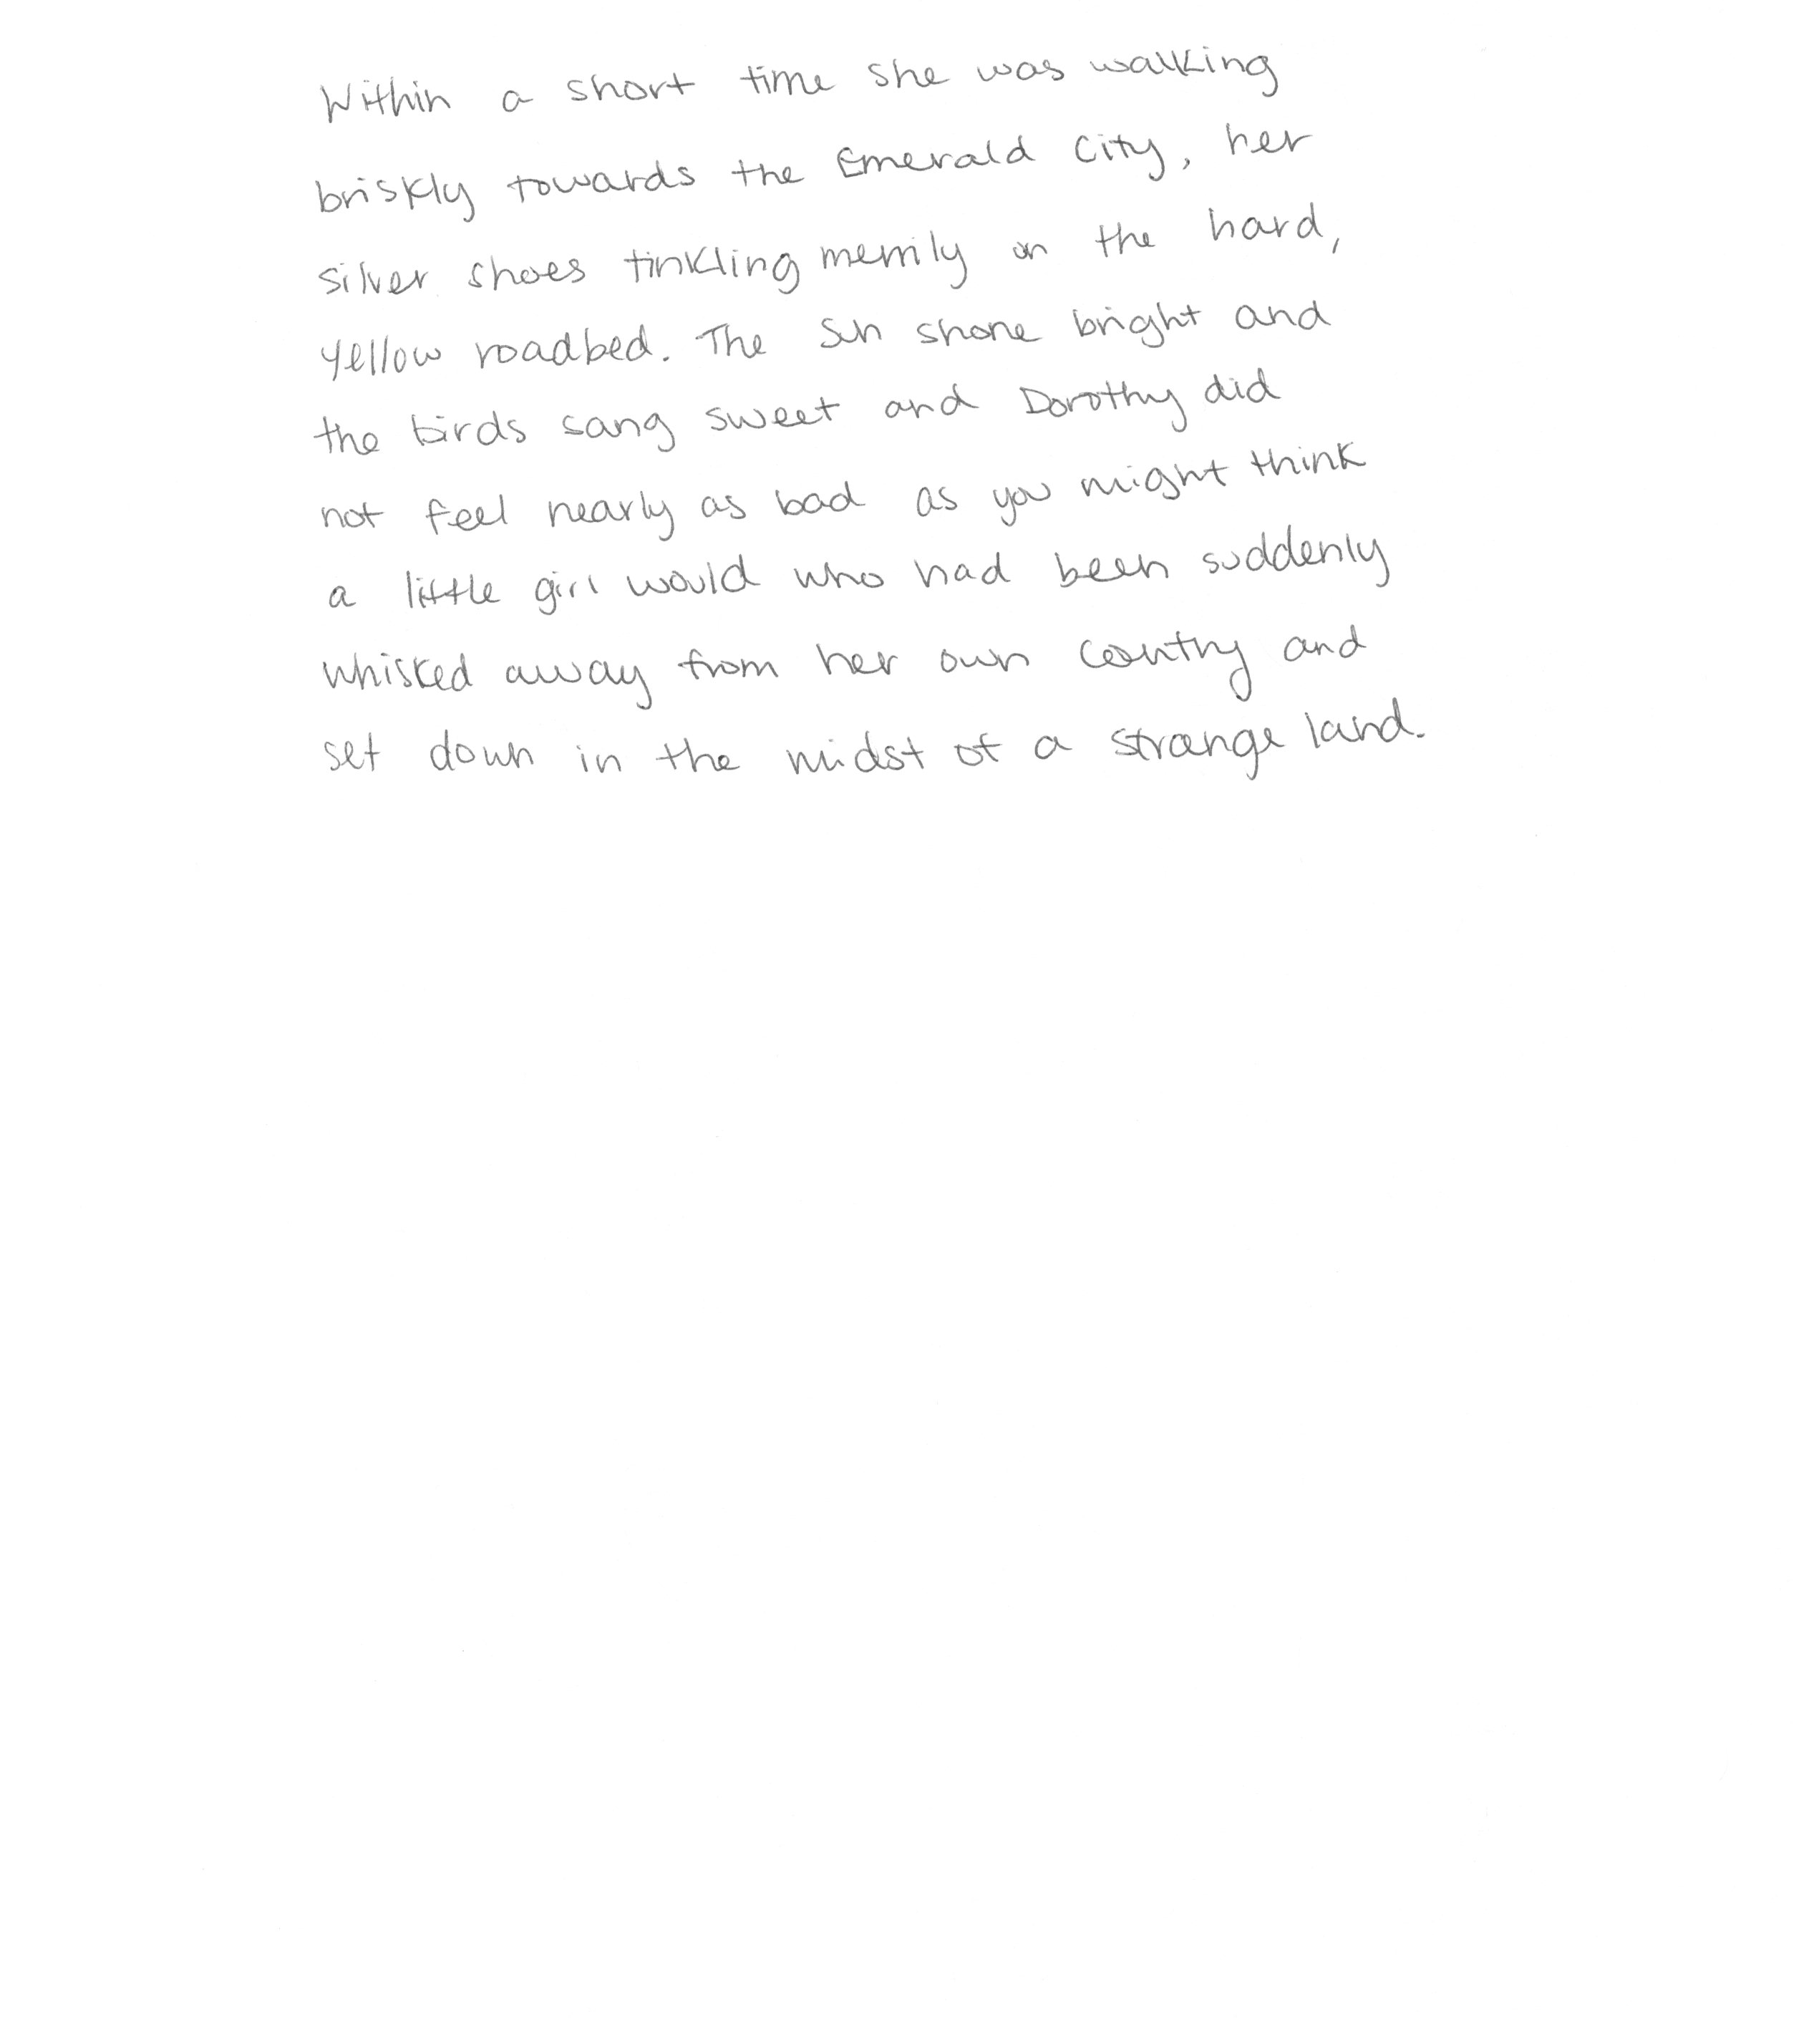 Within a short time she was walking
briskly towards the Emerald City, her
silver shoes tinkling merrily on the hard,
yellow roadbed. The sun shone bright and
the birds sang sweet and Dorothy did
not feel nearly as bad as you might think
a little girl would who had been suddenly
whisked away from her own country and
set down in the midst of a strange land.